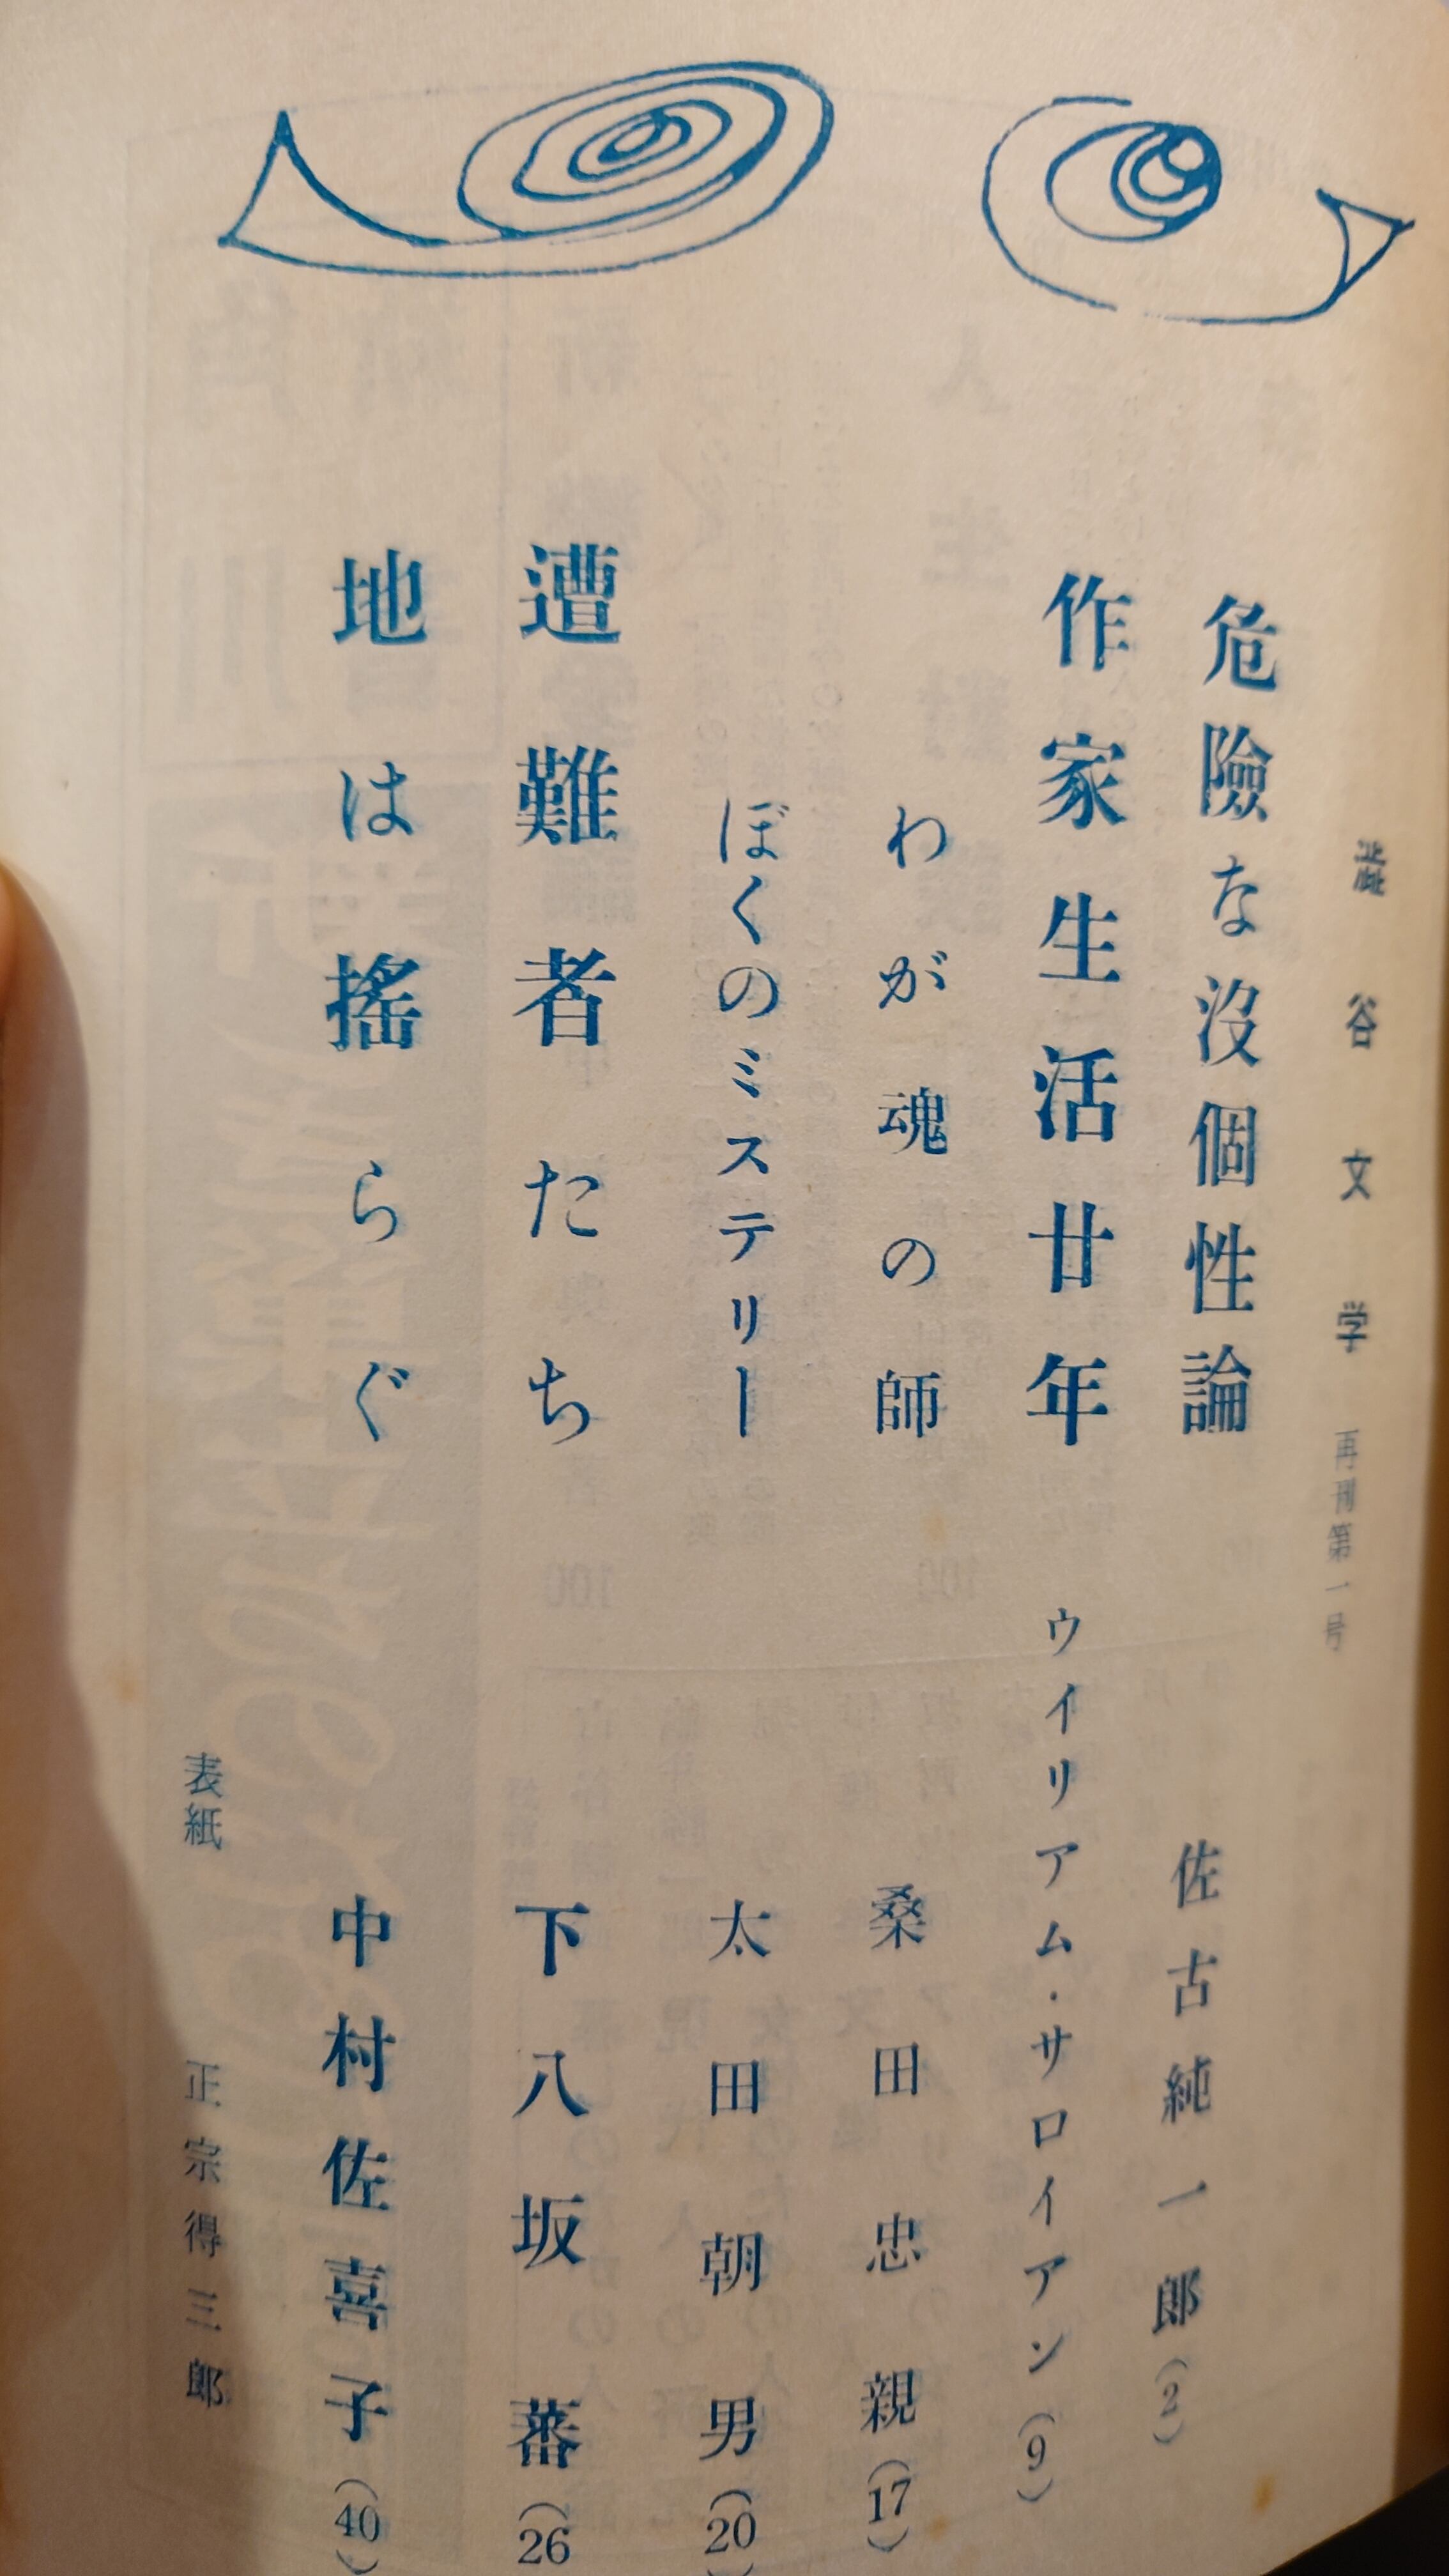 澁谷文学 再刊第一号
危險な沒個性論 佐古純一郎(2)
作家生活廿年 ウイリアム・サロイアン(9)
わが魂の師 桑田忠親(17)
ぼくのミステリー 太田朝男(20)
遭難者たち 下八坂蕃(26
地は搖らぐ 中村佐喜子(40)
表紙 正宗得三郎